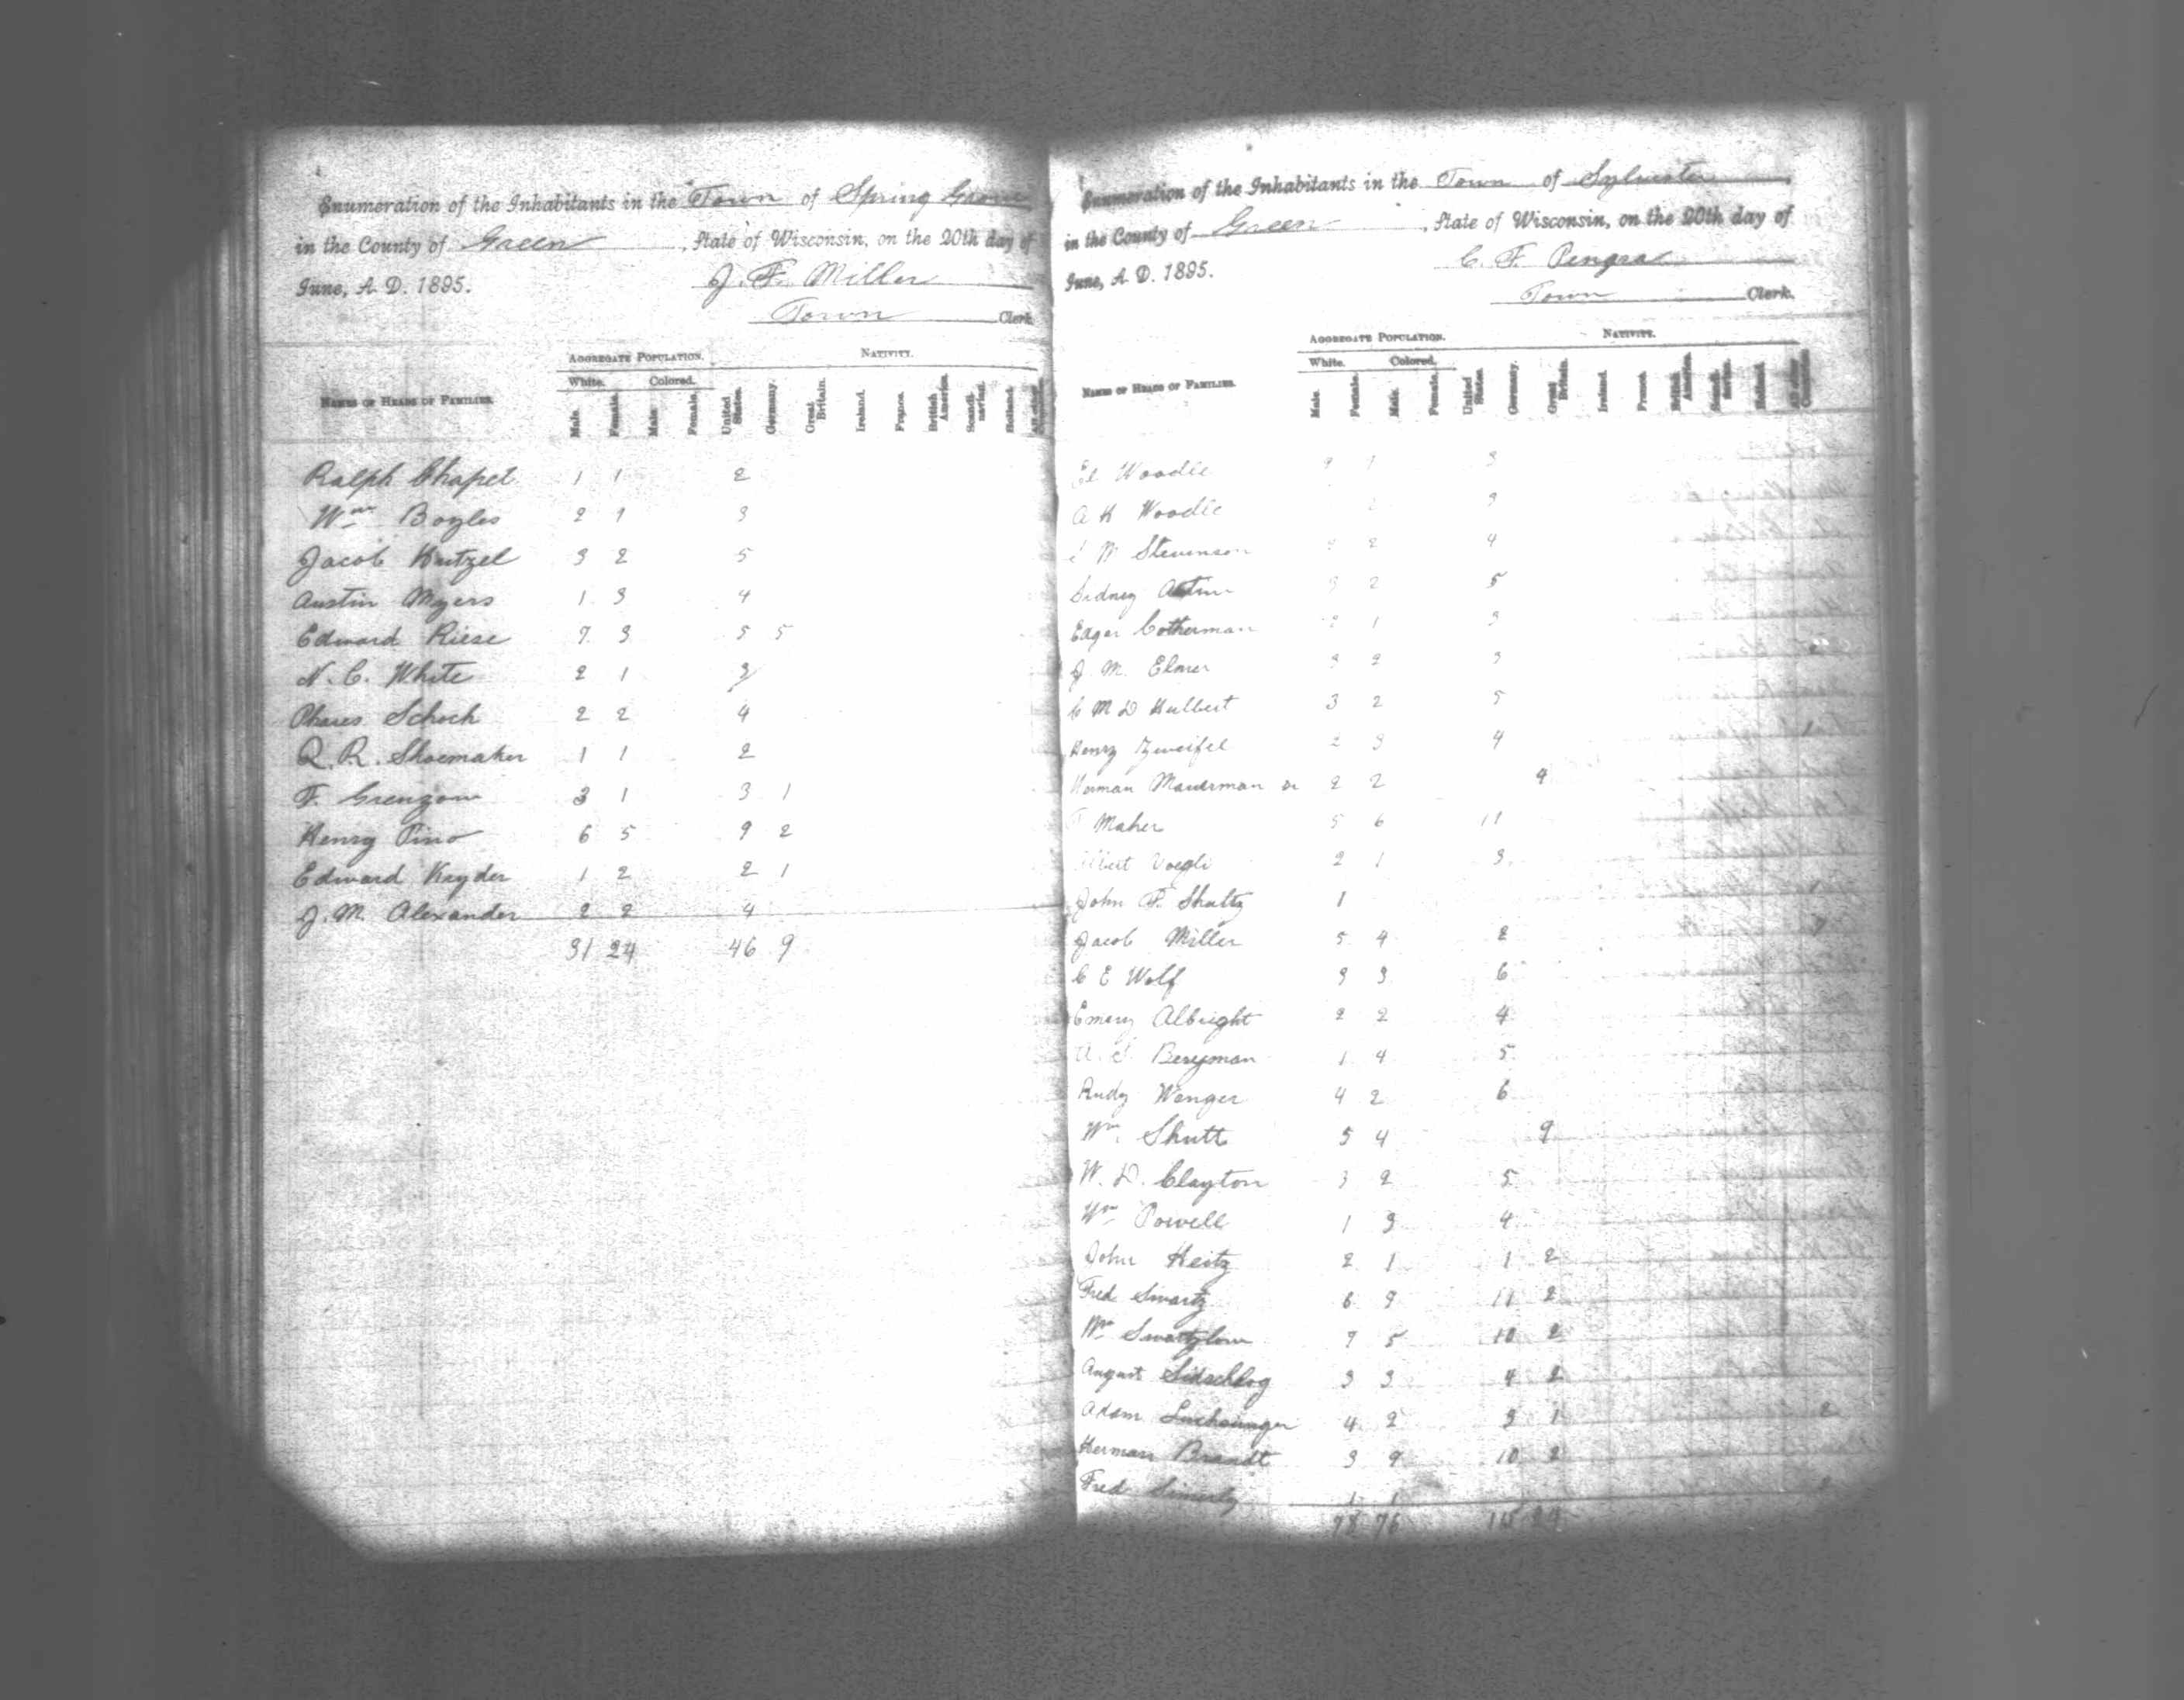 Enumeration of the Inhabitants in the Town of Spring Grove
in the County of Green, State of Wisconsin, on the 20th day of
June, A. D. 1895.
J. F. Miller
Town Clerk
AGGREGATE POPULATION. NATIVITY.
White. Colored.
NAMES OF HEADS OF FAMILIES. Male. Female. Male. Female. United States. Germany. Great Britain. Ireland. France. British America. Scandinavian. Holland.
Ralph Chapel 1 1 2
Wm Boyles 2 1 3
Jacob Kutzel 3 2 5
Austin Myers 1 3 4
Edward Riese 7 3 5 5
N. C. White 2 1 3
Phares Schoch 2 2 4
Q. R. Shoemaker 1 1 2
F. Grenzow 3 1 3 1
Henry Pino 6 5 9 2
Edward Kryder 1 2 2 1
J. M. Alexander 2 2 4
31 24 46 9
Enumeration of the Inhabitants in the Town of Sylvester
in the County of Green, State of Wisconsin, on the 20th day of
June, A. D. 1895.
C. F. Pengra
Town Clerk.
AGGREGATE POPULATION. NATIVITY.
White. Colored.
NAMES OF HEADS OF FAMILIES. Male. Female. Male. Female. United States. Germany. Great Britain. Ireland. France. British America. Holland.
Woodle 1 3
A K Woodle 3
M Stevenson 2 4
Sidney 2 5
Edgar Cotherman 1 3
J. M. Elmer
C M D Hulbert 3 2 5
Henry Zweifel 3 4
Herman Mauerman 2 2 4
Maher 5 6 11
Voegli 2 1 3
John F. Shultz 1
Jacob Miller 5 4 2
C E Wolf 3 3 6
Emery Albright 2 2 4
Bergman 1 4 5
Rudy Wenger 4 2 6
Wm. Shutt 5 4 9
W. D. Clayton 3 2 5
Wm Powell 1 3 4
John Heitz 2 1 1 2
Fred Swartz 6 11 2
Wm Swartzlow 7 5 10 2
August 3 3 4 2
Adam Luchsinger 4 2 3 1 2
Herman Brandt 3 9 10 2
Fred 1 1 2
78 76